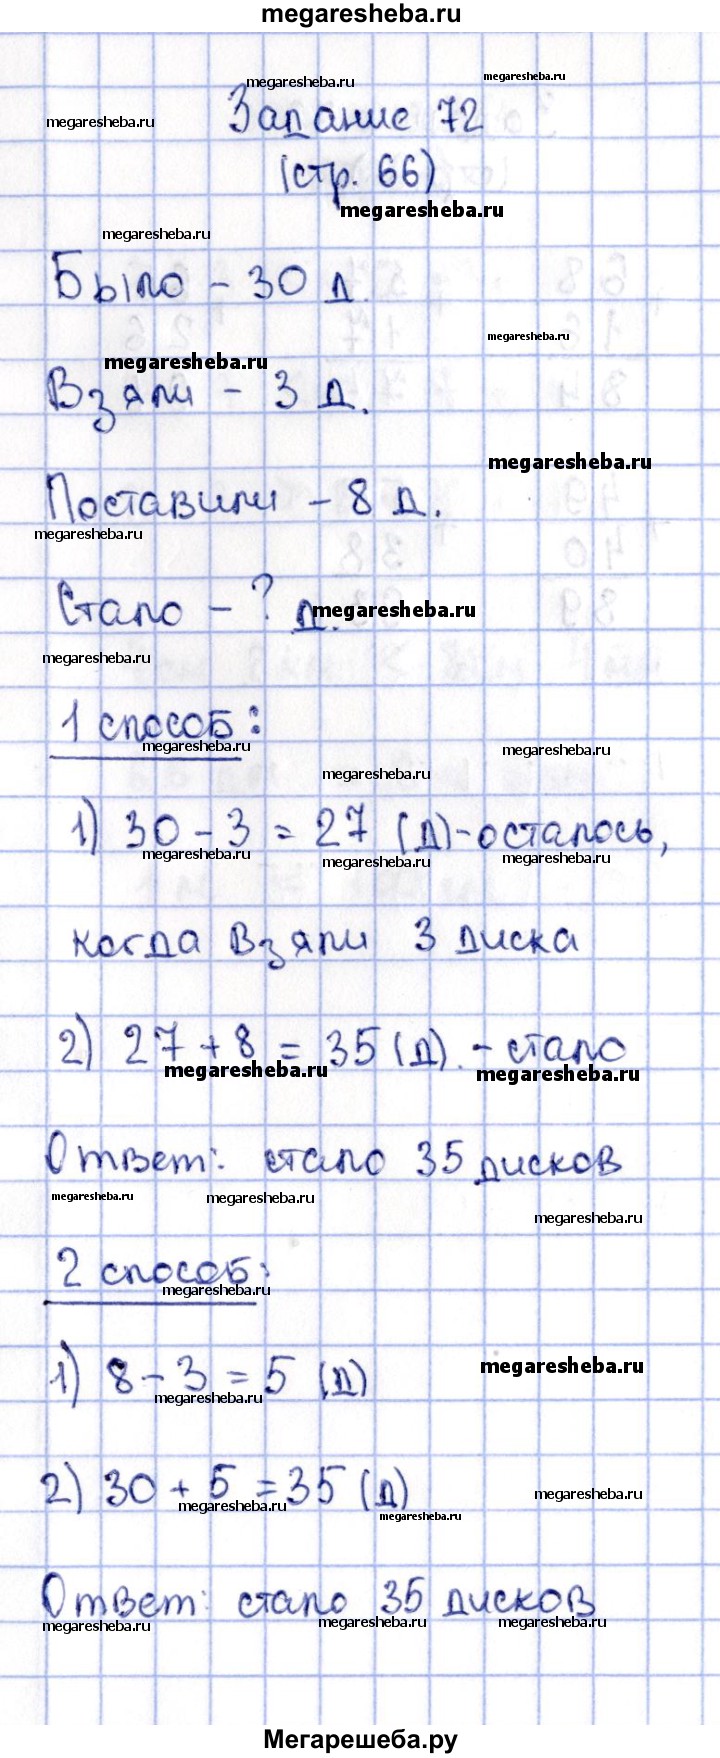 megaresheba.ru
megaresheba.ru
megaresheba.ru
megaresheba.ru
Задание 72
(стр. 66)
megaresheba.ru
megaresheba.ru
Было - 30 д.
megaresheba.ru
megaresheba.ru
Взяли - 3 д.
megaresheba.ru
Поставили - 8 д.
megaresheba.ru
Стало - ? д.
megaresheba.ru
megaresheba.ru
1 способ:
megaresheba.ru
megaresheba.ru
megaresheba.ru
1) 30 - 3 = 27 (д) - осталось,
megaresheba.ru
megaresheba.ru
megaresheba.ru
когда взяли 3 диска
2) 27 + 8 = 35 (д). - стало
megaresheba.ru
megaresheba.ru
Ответ: стало 35 дисков
megaresheba.ru
megaresheba.ru
megaresheba.ru
2 способ:
megaresheba.ru
1) 8 - 3 = 5 (д)
megaresheba.ru
megaresheba.ru
2) 30 + 5 = 35 (д)
megaresheba.ru
megaresheba.ru
megaresheba.ru
Ответ: стало 35 дисков
megaresheba.ru
megaresheba.ru
megaresheba.ru
Мегарешеба.ру